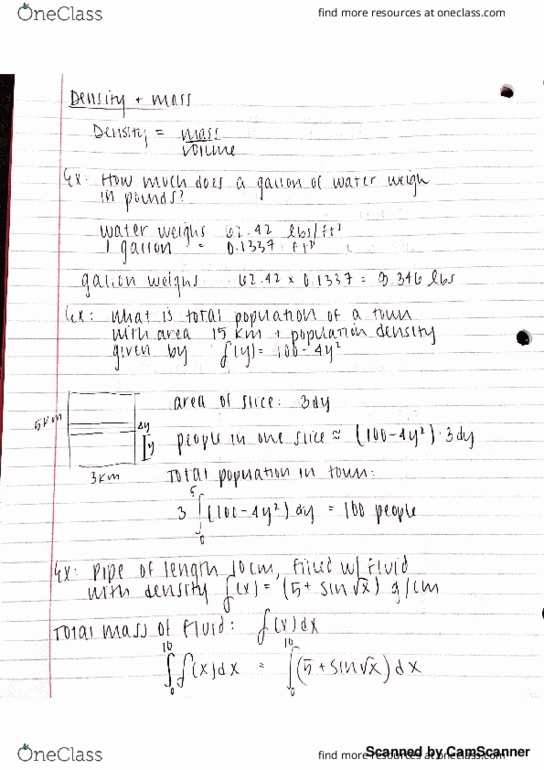 OneClass
find more resources at oneclass.com
Density + mass
Density = mass
volume
Ex: How much does a gallon of water weigh
in pounds?
water weighs 62.42 lbs/ft³
1 gallon = 0.1337 ft³
gallon weighs 62.42 x 0.1337 = 8.346 lbs
Ex: What is total population of a town
with area 15 km + population density
given by f(y) = 100 - 4y²
area of slice: 3dy
5km
Δy
y
people in one slice ≈ (100-4y²)·3dy
3km
Total population in town:
5
3∫(100-4y²)dy = 100 people
0
Ex: Pipe of length 10cm, filled w/ fluid
with density f(x) = (5 + sin√x) g/cm
Total mass of fluid: f(x)dx
10 10
∫f(x)dx = ∫(5 + sin√x)dx
0 0
OneClass
find more resources at oneclass.com
Scanned by CamScanner